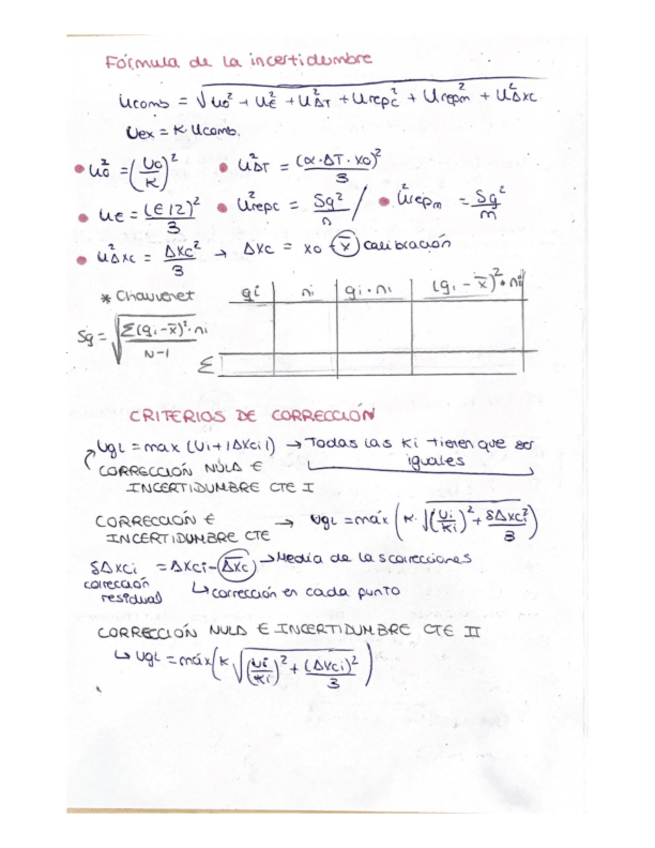 Fórmula de la incertidumbre
Ucomb = √u₀² + u_E² + u²ΔT + Urep_c² + Urep_m² + u²Δxc
Uex = K Ucomb.
• u₀² = (U₀/K)² • u²ΔT = (α·ΔT·x₀)²/3
• u_E = (E/2)²/3 • U²repc = Sq²/n / • U²repm = Sq²/m
• u²Δxc = Δxc²/3 → Δxc = x₀ - x̄ calibración
* Chauvenet qi ni qi·ni (qi - x̄)²·ni
Sq = √Σ(qi-x̄)²·ni / N-1
Σ
CRITERIOS DE CORRECCIÓN
UgL = max (Ui + |ΔXci|) → Todas las Ki tienen que ser iguales
CORRECCIÓN NULA E
INCERTIDUMBRE CTE I
CORRECCIÓN E
INCERTIDUMBRE CTE → UgL = máx (K·√(Ui/Ki)² + δΔxci²/3)
δΔxci = Δxci - Δ̄x̄c̄ → Media de las correcciones
corrección
residual ↳ corrección en cada punto
CORRECCIÓN NULA E INCERTIDUMBRE CTE II
↳ UgL = máx (K √(Ui/Ki)² + (Δxci)²/3)